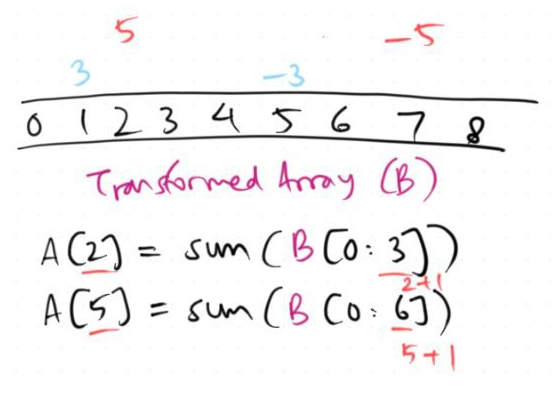 5 -5
3 -3
0 1 2 3 4 5 6 7 8
Transformed Array (B)
A[2] = sum(B[0:3])
2+1
A[5] = sum(B[0:6])
5+1